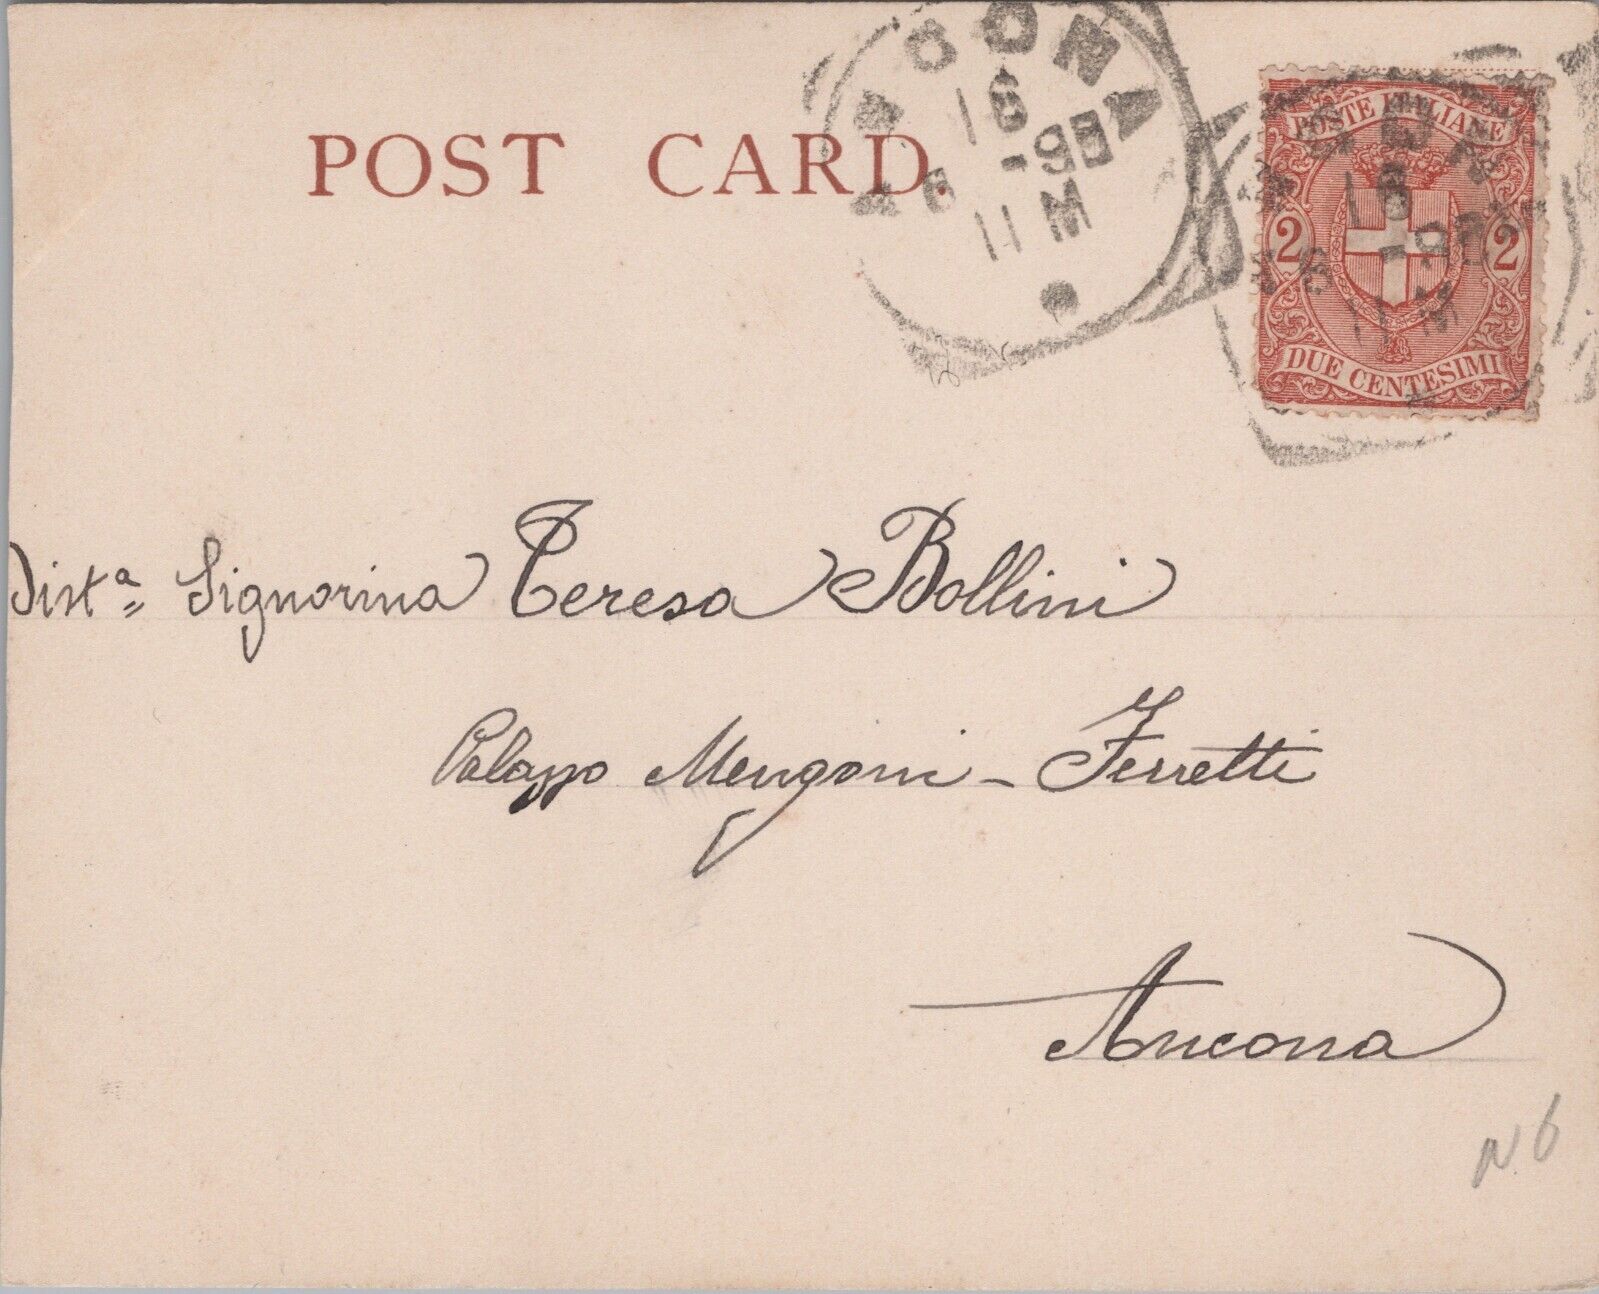 POST CARD.
ANCONA
POSTE ITALIANE
2 2
DUE CENTESIMI
Dist.ª Signorina Teresa Bollini
Palazzo Mengoni - Ferretti
Ancona
N 6